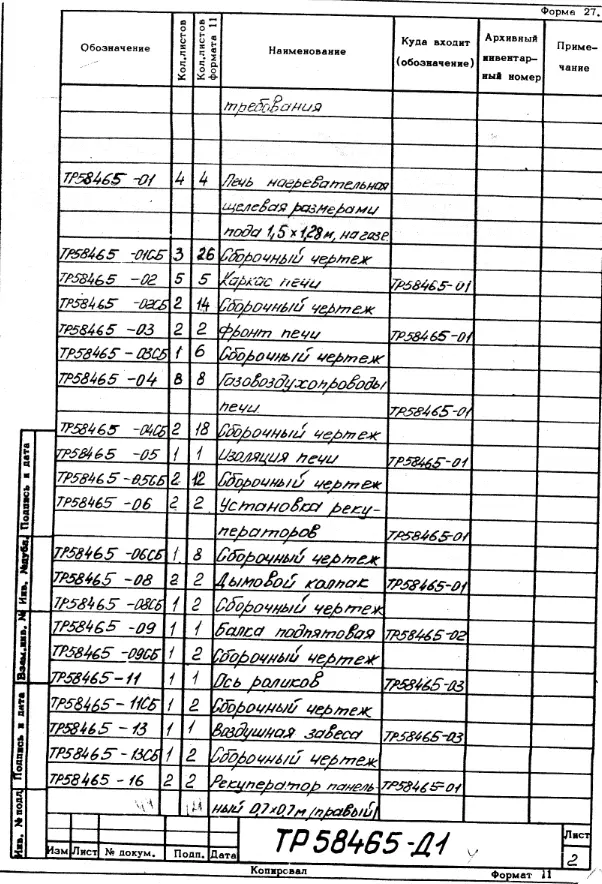 Форма 27.
Обозначение Кол.листов Кол.листов формата 11 Наименование Куда входит (обозначение) Архивный инвентар- ный номер Приме- чание
требования
ТР58465 -01 4 4 Печь нагревательная
щелевая размерами
пода 1,5 х 1,28 м, на газе
ТР58465 -01СБ 3 26 Сборочный чертеж
ТР58465 -02 5 5 Каркас печи ТР58465-01
ТР58465 -02СБ 2 14 Сборочный чертеж
ТР58465 -03 2 2 Фронт печи ТР58465-01
ТР58465 -03СБ 1 6 Сборочный чертеж
ТР58465 -04 8 8 Газовоздухопроводы
печи ТР58465-01
ТР58465 -04СБ 2 18 Сборочный чертеж
ТР58465 -05 1 1 Изоляция печи ТР58465-01
ТР58465 -05СБ 2 12 Сборочный чертеж
ТР58465 -06 2 2 Установка реку-
ператоров ТР58465-01
ТР58465 -06СБ 1 8 Сборочный чертеж
ТР58465 -08 2 2 Дымовой колпак ТР58465-01
ТР58465 -08СБ 1 2 Сборочный чертеж
ТР58465 -09 1 1 Балка подпятовая ТР58465-02
ТР58465 -09СБ 1 2 Сборочный чертеж
ТР58465-11 1 1 Ось роликов ТР58465-03
ТР58465-11СБ 1 2 Сборочный чертеж
ТР58465-13 1 1 Воздушная завеса ТР58465-03
ТР58465-13СБ 1 2 Сборочный чертеж
ТР58465 -16 2 2 Рекуператор панель- ТР58465-01
ный 0,7х0,7м (правый)
Инв. № подл. Подпись и дата Взам.инв. № Инв. №дубл. Подпись и дата
ТР58465-Д1
Лист
2
Изм Лист № докум. Подп. Дата
Копировал Формат 11